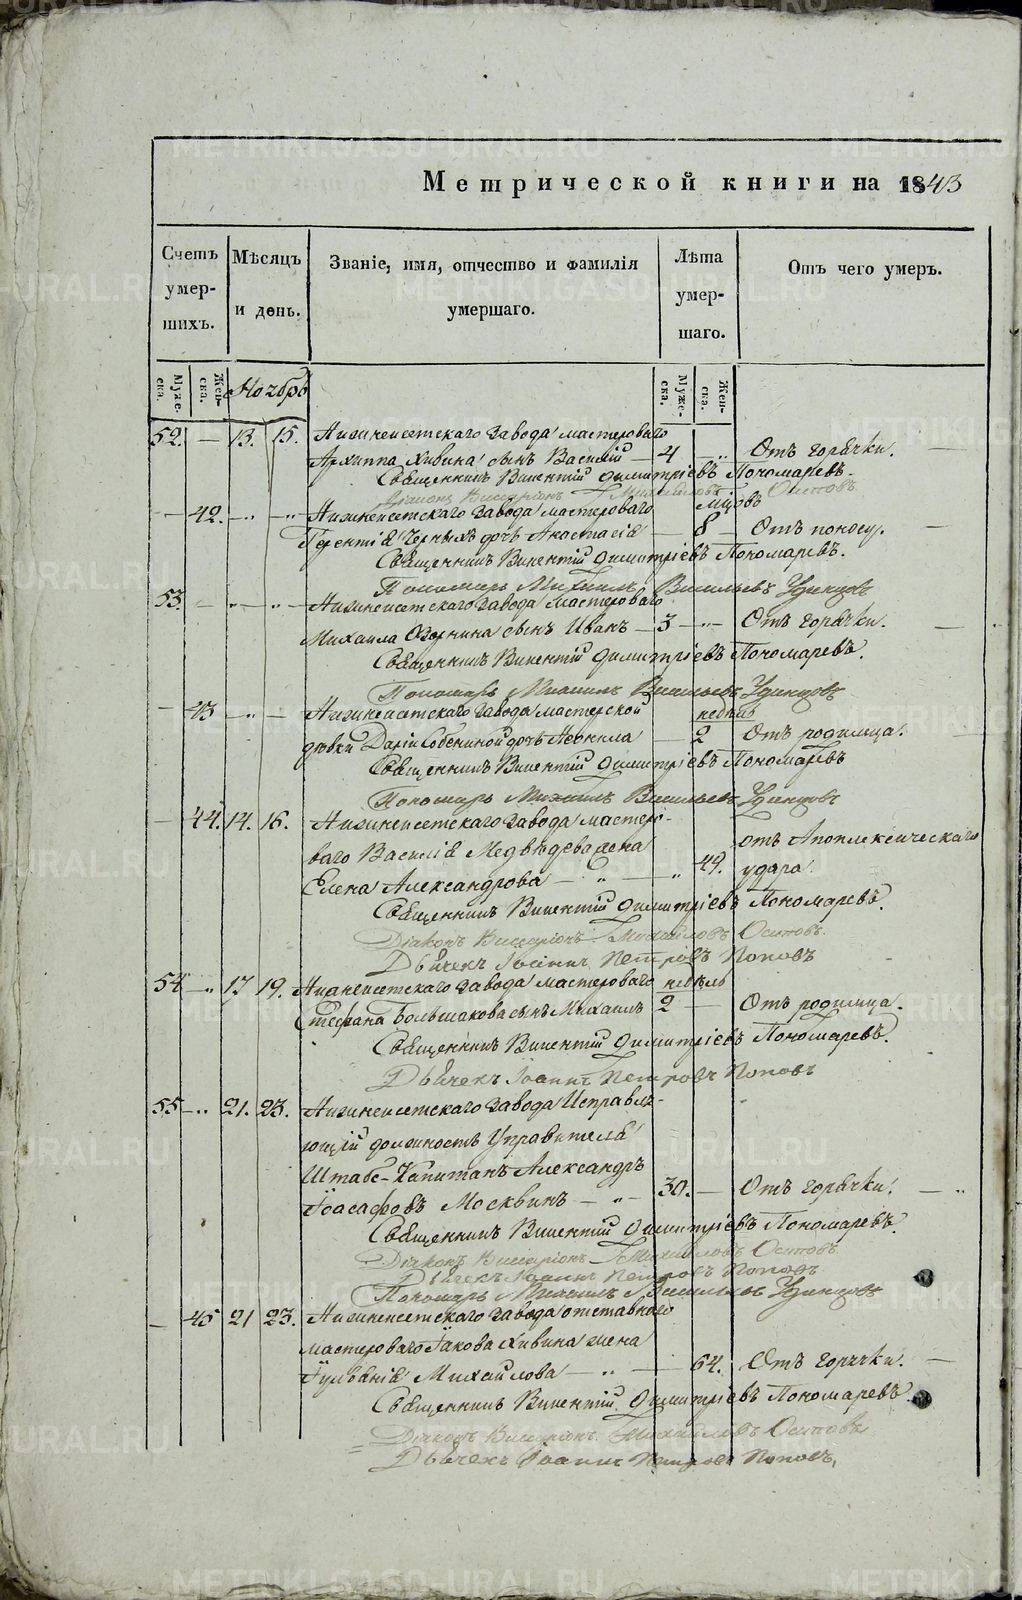 Метрической книги на 1843
Счетъ умер-шихъ.
Мѣсяцъ и день.
Званіе, имя, отчество и фамилія умершаго.
Лѣта умер-шаго.
Отъ чего умеръ.
Муже-ска.
Жен-ска.
Ноябрь
Муже-ска.
Жен-ска.
52. — 13. 15. Нижнеисетскаго завода мастероваго
Архиппа Хивина сынъ Василій — 4 — „ Отъ горячки.
Священникъ Викентій Димитріевъ Пономаревъ.
Діаконъ Виссаріонъ Михайловъ Осиповъ
— 42. — „ — „ — Нижнеисетскаго завода мастероваго мѣсяцовъ
Терентія Черныхъ дочь Анастасія — 8 — Отъ поносу.
Священникъ Викентій Димитріевъ Пономаревъ.
Пономарь Михаилъ Васильевъ Удинцовъ
53. — „ — „ — Нижнеисетскаго завода мастероваго
Михаила Озорнина сынъ Иванъ — 3 — „ — Отъ горячки.
Священникъ Викентій Димитріевъ Пономаревъ.
Пономарь Михаилъ Васильевъ Удинцовъ
— 43 — „ — Нижнеисетскаго завода мастерской недѣль
дѣвки Даріи дочь Неонила — 2 Отъ родимца.
Священникъ Викентій Димитріевъ Пономаревъ
Пономарь Михаилъ Васильевъ Удинцовъ
— 44. 14. 16. Нижнеисетскаго завода мастеро-
ваго Василія Медвѣдева жена отъ Апоплексическаго
Елена Александрова — „ — „ 49. удара.
Священникъ Викентій Димитріевъ Пономаревъ.
Діаконъ Виссаріонъ Михайловъ Осиповъ.
Дьячекъ Іоаннъ Петровъ Поповъ
54 — „ 17 19. Нижнеисетскаго завода мастероваго недѣль
Стефана Большакова сынъ Михаилъ 2 — Отъ родимца.
Священникъ Викентій Димитріевъ Пономаревъ.
Дьячекъ Іоаннъ Петровъ Поповъ
55 — „ 21. 23. Нижнеисетскаго завода Исправля-
ющій должность Управителя
Штабс-Капитанъ Александръ
Іоасафовъ Москвинъ — „ — 30. — Отъ горячки. — „
Священникъ Викентій Димитріевъ Пономаревъ.
Діаконъ Виссаріонъ Михайловъ Осиповъ.
Дьячекъ Іоаннъ Петровъ Поповъ
Пономарь Михаилъ Васильевъ Удинцовъ
— 45 21 23. Нижнеисетскаго завода отставнаго
мастероваго Іакова Хивина жена
Іуліанія Михайлова — „ — 64. Отъ горячки. —
Священникъ Викентій Димитріевъ Пономаревъ.
Діаконъ Виссаріонъ Михайловъ Осиповъ
Дьячекъ Іоаннъ Петровъ Поповъ.
METRIKI.GASO-URAL.RU